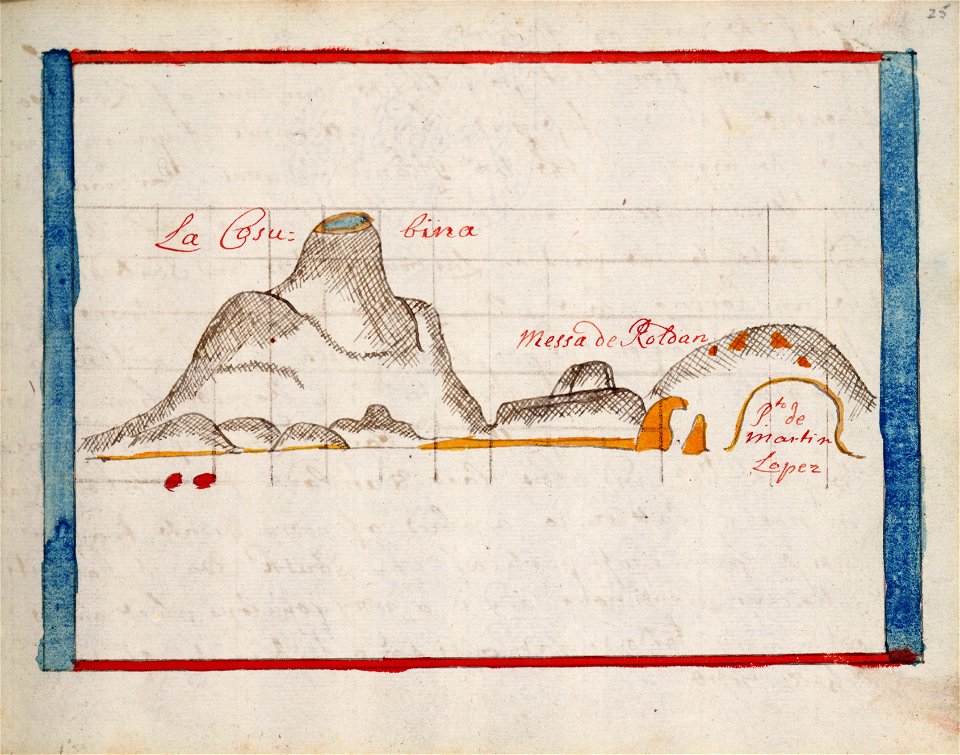 25
La Cosu= bina
Messa de Roldan
Pto de
Martin
Lopez